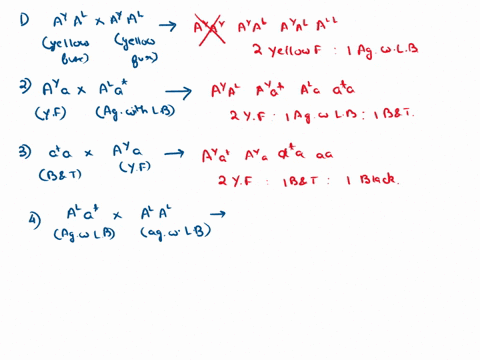 1) AʸAᴸ × AʸAᴸ → AʸAʸ AʸAᴸ AʸAᴸ Aᴸᴸ
(yellow fur) (yellow fur)
2 yellow F : 1 Ag. w. L.B
2) Aʸa × Aᴸa⁺ → AʸAᴸ Aʸa⁺ Aᴸa a⁺a
(Y.F) (Ag. with LB)
2 Y.F : 1 Ag. w L.B : 1 B&T.
3) a⁺a × Aʸa → Aʸa⁺ Aʸa a⁺a aa
(B&T) (Y.F)
2 Y.F : 1 B&T : 1 Black.
4) Aᴸa⁺ × AᴸAᴸ →
(Ag. w LB) (ag. w. LB)